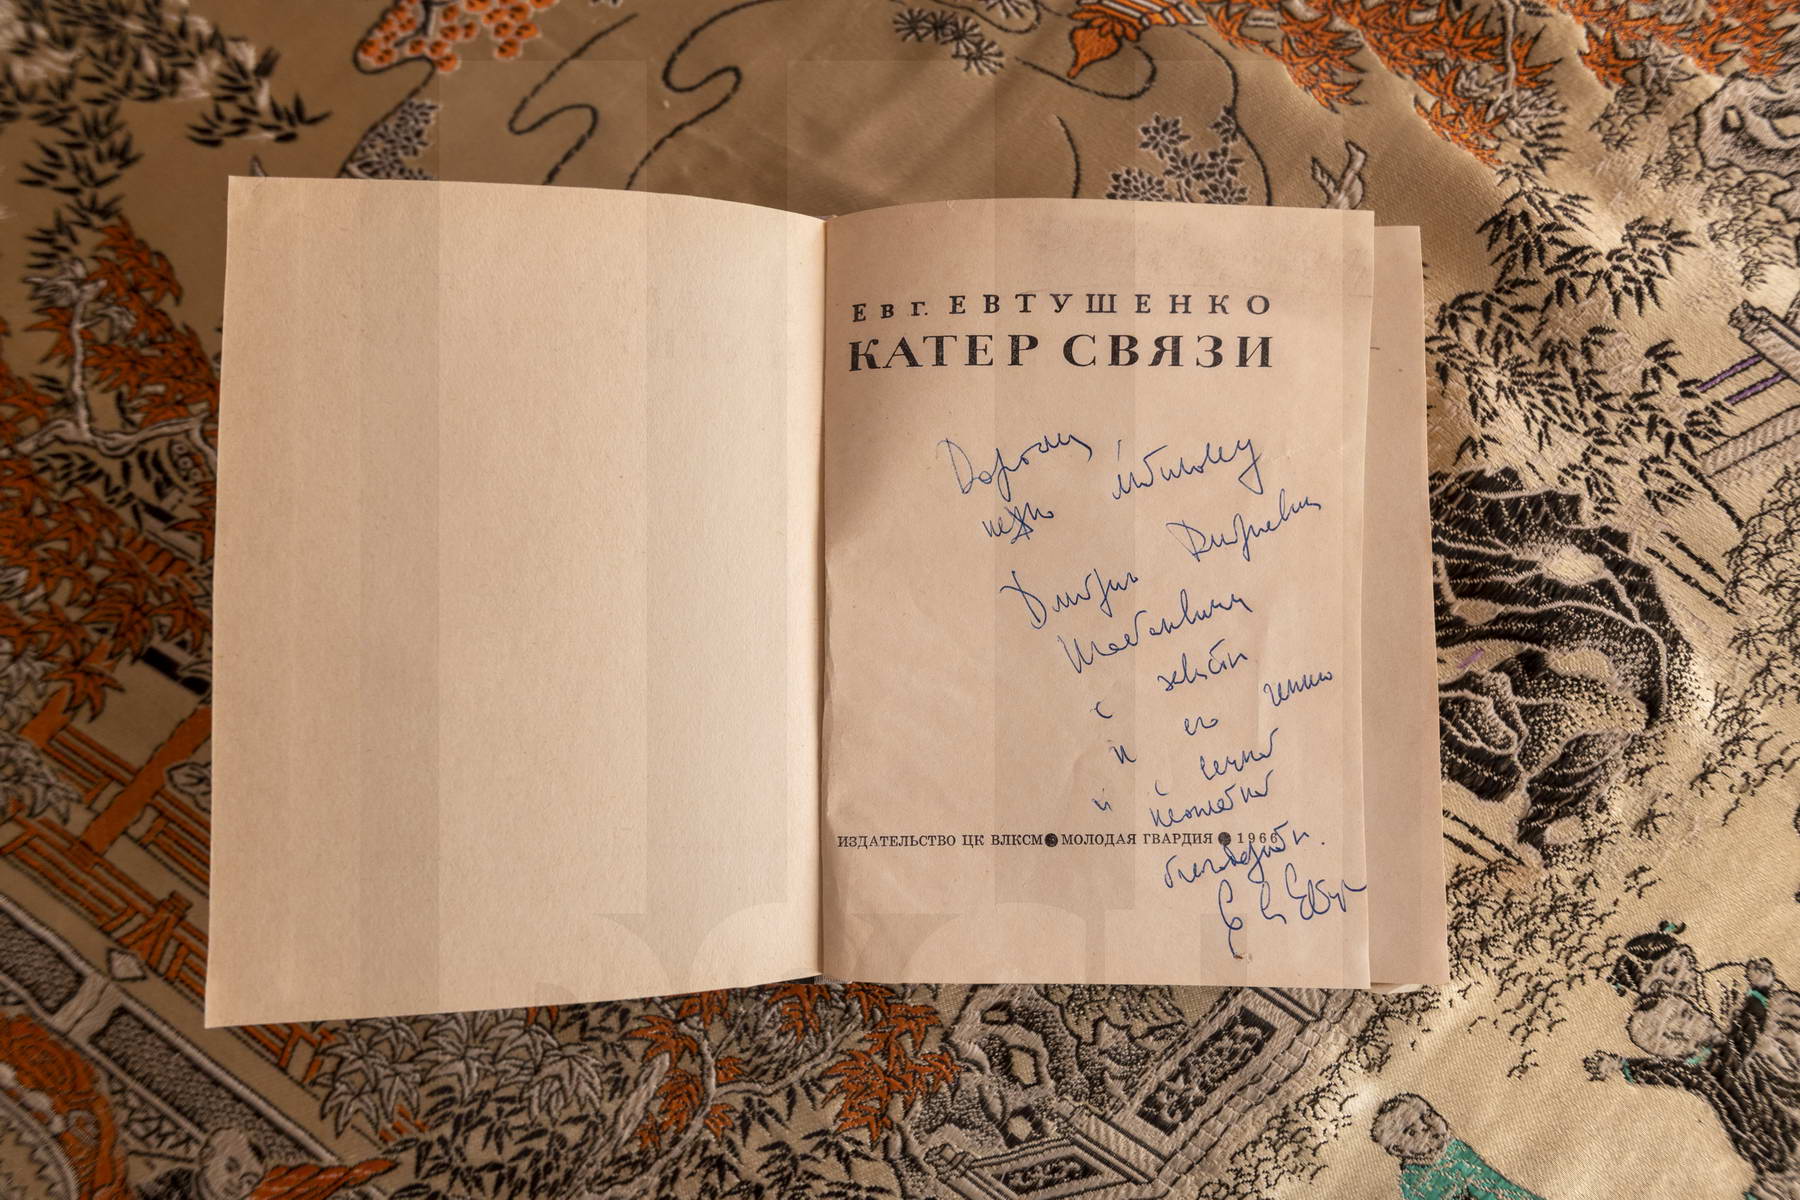 ЕВГ. ЕВТУШЕНКО
КАТЕР СВЯЗИ
Дорогому
нежно любимому
Дмитрию Дмитриевичу
Шостаковичу
с
и его гению
и с вечной
благодарностью.
ИЗДАТЕЛЬСТВО ЦК ВЛКСМ ● МОЛОДАЯ ГВАРДИЯ ● 1966